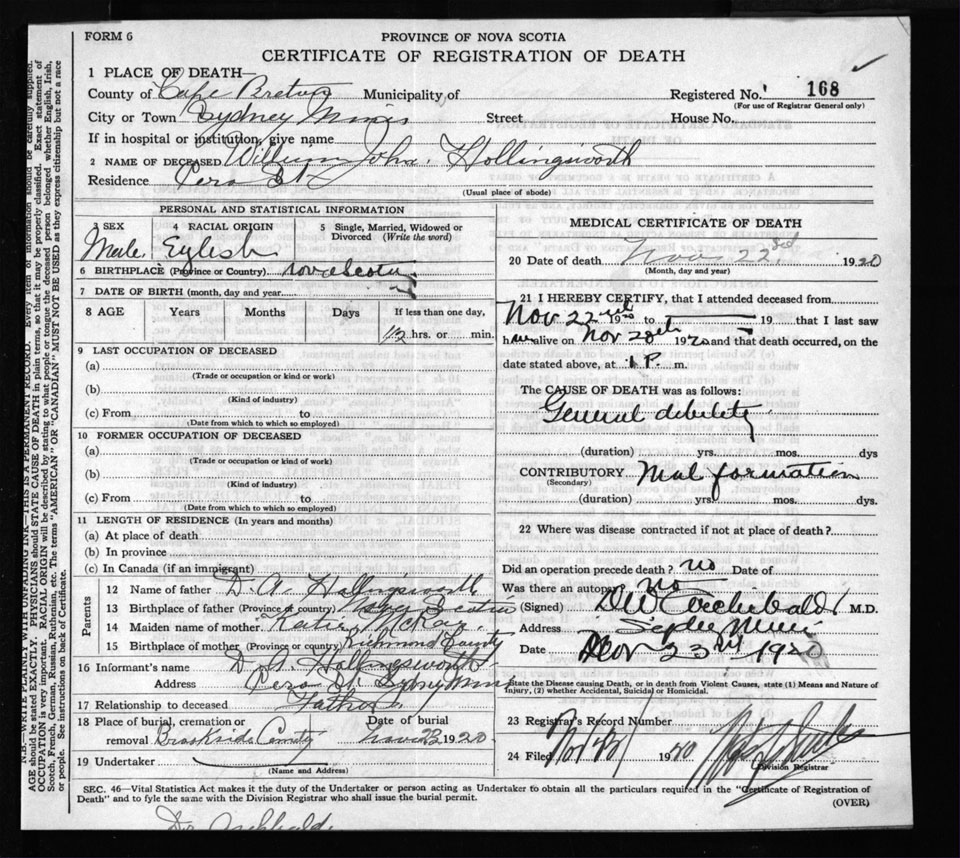 FORM 6
PROVINCE OF NOVA SCOTIA
CERTIFICATE OF REGISTRATION OF DEATH
1 PLACE OF DEATH—
County of Cape Breton Municipality of Registered No. 168
(For use of Registrar General only)
City or Town Sydney Mines Street House No.
If in hospital or institution, give name
2 NAME OF DECEASED William John Hollingsworth
Residence St
(Usual place of abode)
PERSONAL AND STATISTICAL INFORMATION
3 SEX 4 RACIAL ORIGIN 5 Single, Married, Widowed or Divorced (Write the word)
Male
6 BIRTHPLACE (Province or Country) Nova Scotia
7 DATE OF BIRTH (month, day and year)
8 AGE Years Months Days If less than one day,
1/2 hrs. or min.
9 LAST OCCUPATION OF DECEASED
(a)
(Trade or occupation or kind or work)
(b)
(Kind of industry)
(c) From to
(Date from which to which so employed)
10 FORMER OCCUPATION OF DECEASED
(a)
(Trade or occupation or kind of work)
(b)
(Kind of industry)
(c) From to
(Date from which to which so employed)
11 LENGTH OF RESIDENCE (In years and months)
(a) At place of death
(b) In province
(c) In Canada (if an immigrant)
Parents
12 Name of father D. A. Hollingsworth
13 Birthplace of father (Province or country) Nova Scotia
14 Maiden name of mother Katie McKay
15 Birthplace of mother (Province or country) Richmond County
16 Informant's name D. A. Hollingsworth
Address St. Sydney Mines
17 Relationship to deceased Father
18 Place of burial, cremation or removal Brookside County Date of burial Nov 23 1920
19 Undertaker
(Name and Address)
MEDICAL CERTIFICATE OF DEATH
20 Date of death Nov 22nd 1920
(Month, day and year)
21 I HEREBY CERTIFY, that I attended deceased from
Nov 22nd 1920 to 19 that I last saw
h alive on Nov 1920 and that death occurred, on the
date stated above, at 1 P. m.
The CAUSE OF DEATH was as follows:
General debility
(duration) yrs. mos. dys
CONTRIBUTORY Mal formation
(Secondary)
(duration) yrs. mos. dys.
22 Where was disease contracted if not at place of death?
Did an operation precede death? no Date of
Was there an autopsy No
(Signed) D W Archibald M.D.
Address Sydney Mines
Date Nov 23rd 1920
State the Disease causing Death, or in death from Violent Causes, state (1) Means and Nature of
Injury, (2) whether Accidental, Suicidal or Homicidal.
23 Registrar's Record Number
24 Filed Nov 1920
Division Registrar
SEC. 46—Vital Statistics Act makes it the duty of the Undertaker or person acting as Undertaker to obtain all the particulars required in the "Certificate of Registration of
Death" and to fyle the same with the Division Registrar who shall issue the burial permit.
(OVER)
Dr Archibald
N.B.—WRITE PLAINLY WITH UNFADING INK—THIS IS A PERMANENT RECORD. Every item of information should be carefully supplied.
AGE should be stated EXACTLY. PHYSICIANS should STATE CAUSE OF DEATH in plain terms, so that it may be properly classified. Exact statement of
OCCUPATION is very important. RACIAL ORIGIN will be described by stating to what people or tongue the deceased person belonged whether English, Irish,
Scotch, French, German, Russian, Ruthenian, etc. The terms "AMERICAN" OR "CANADIAN" MUST NOT BE USED as they express citizenship but not a race
or people. See instructions on back of Certificate.